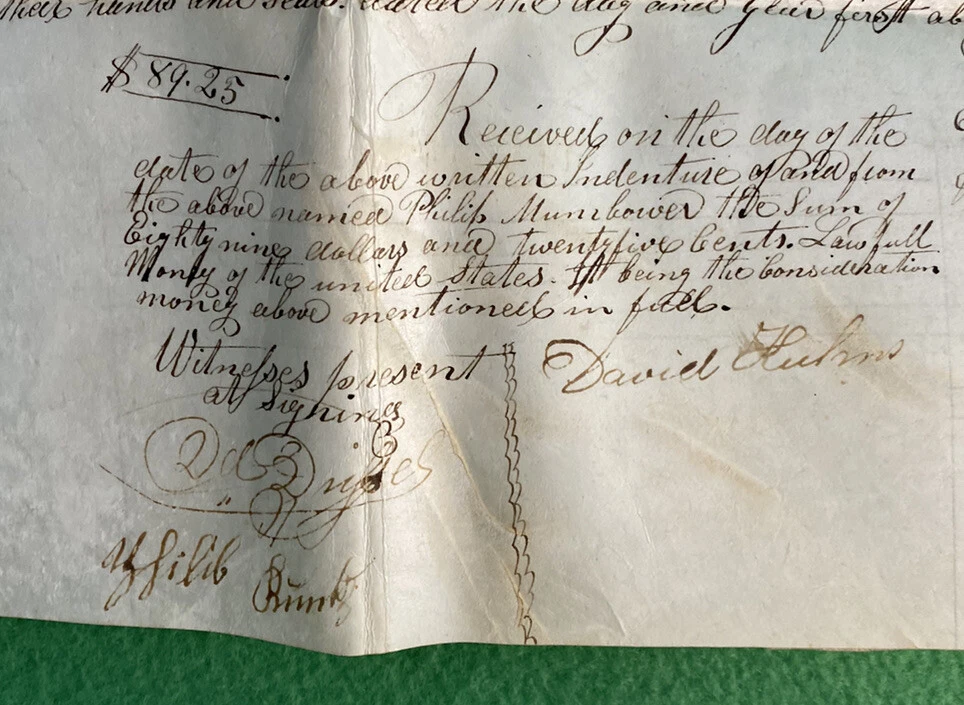 their hands and seals. dated the day and year first ab
$ 89.25
Received on the day of the
date of the above written Indenture of and from
the above named Philip Mumbower the Sum of
Eighty nine dollars and twentyfive Cents. Lawfull
Money of the united States. It being the Consideration
money above mentioned in full.
Witnesses present
at Signing
David Kuhns
Philib Kuntz